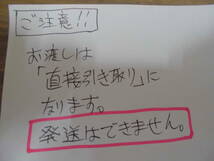 ご注意!!
お渡しは
「直接引き取り」に
なります。
発送はできません。